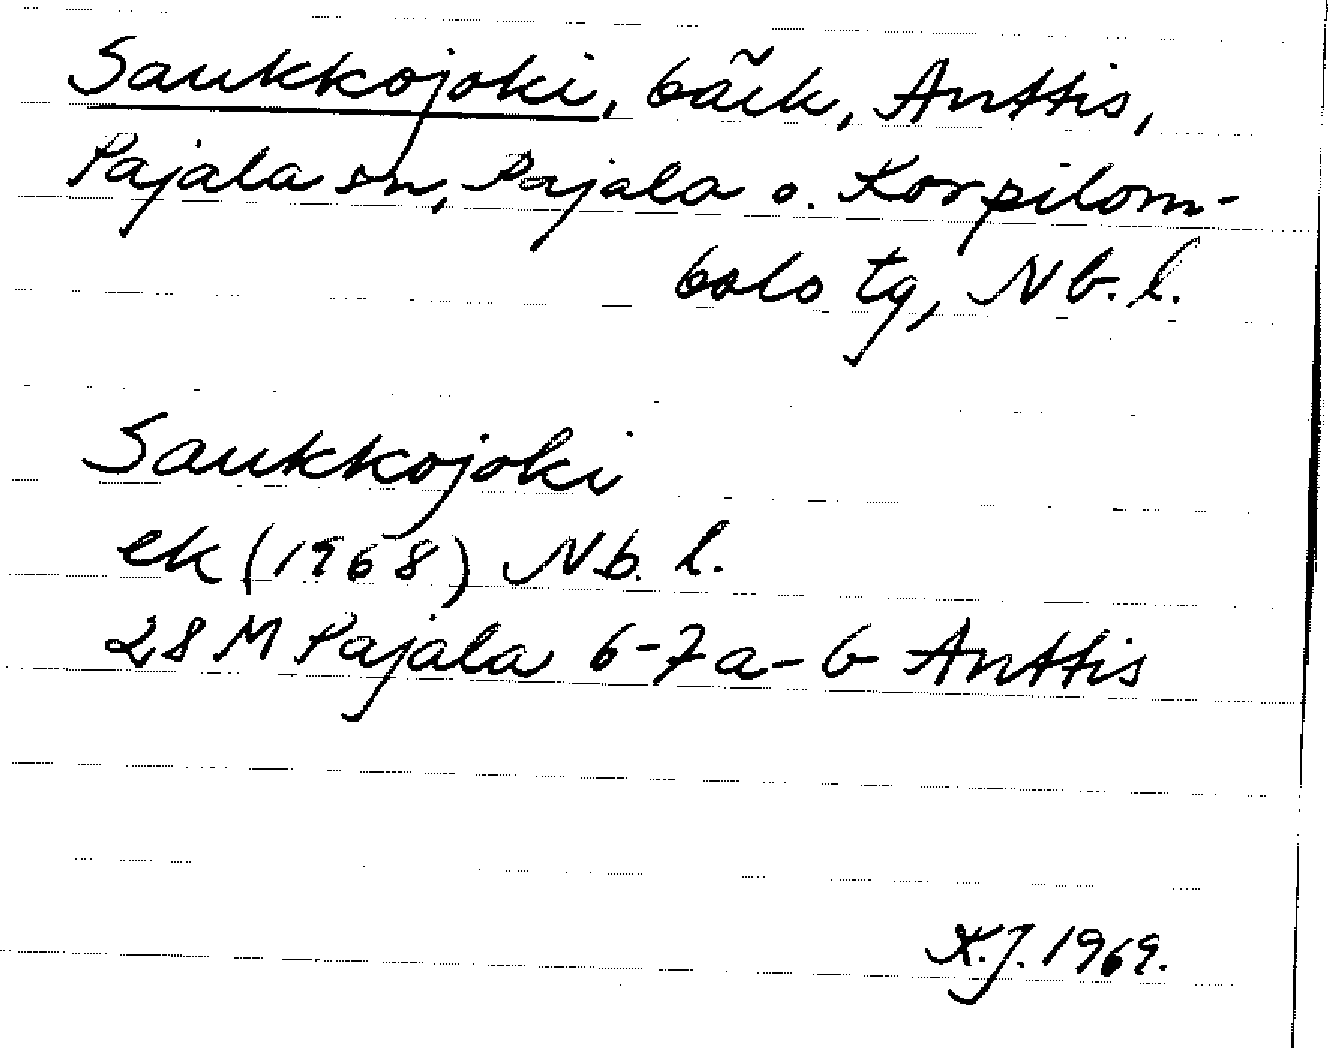 Saukkojoki, bäck, Anttis,
Pajala sn, Pajala o. Korpilom-
bolo tg, Nb. l.
Saukkojoki
ek (1968) Nb. l.
28 M Pajala 6-7 a-b Anttis
K.J. 1969.